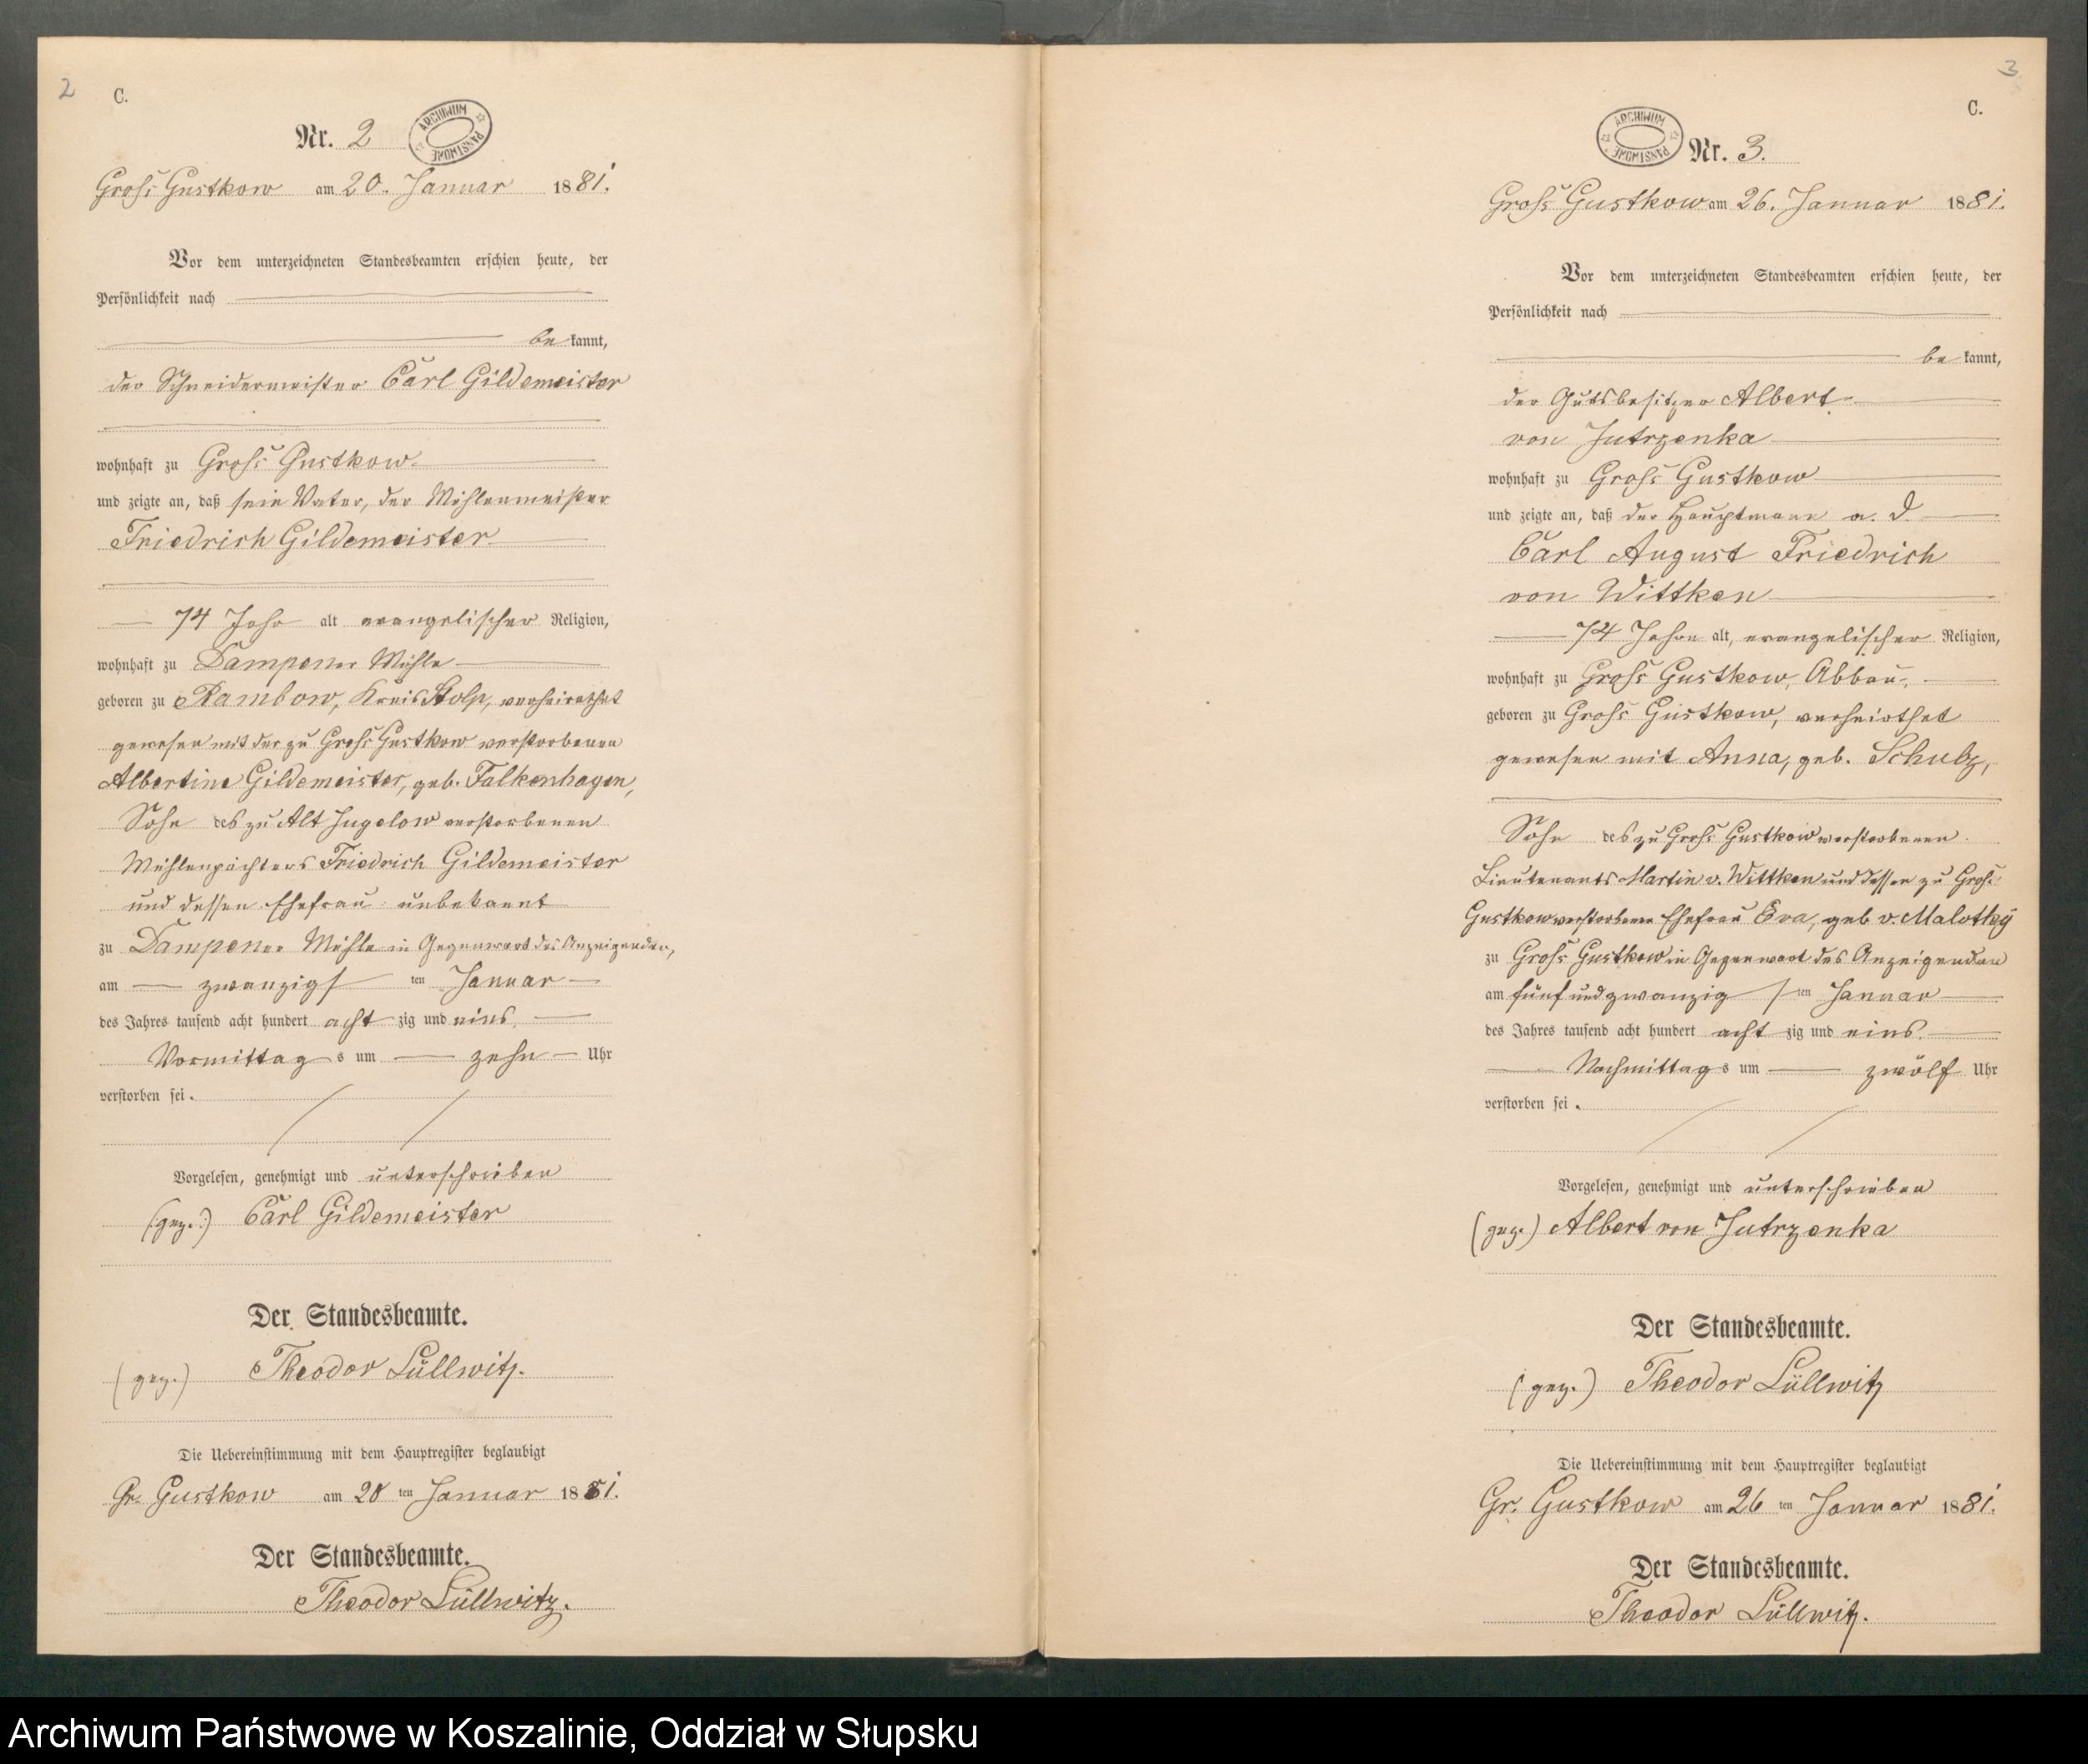 2
C.
Nr. 2
ARCHIWUM PAŃSTWOWE
Groß Gustkow am 20. Januar 1881.
Vor dem unterzeichneten Standesbeamten erschien heute, der
Persönlichkeit nach
be kannt,
der Schneidermeister Carl Gildemeister
wohnhaft zu Groß Gustkow.
und zeigte an, daß sein Vater, der Mühlenmeister
Friedrich Gildemeister
74 Jahr alt evangelischer Religion,
wohnhaft zu Dampener Mühle
geboren zu Rambow, Kreis Stolp, verheirathet
gewesen mit der zu Groß Gustkow verstorbenen
Albertine Gildemeister, geb. Falkenhagen,
Sohn des zu Alt Jugelow verstorbenen
Mühlenpächters Friedrich Gildemeister
und dessen Ehefrau unbekannt
zu Dampener Mühle in Gegenwart des Anzeigenden,
am zwanzigs ten Januar
des Jahres tausend acht hundert acht zig und eins,
Vormittag s um zehn Uhr
verstorben sei.
Vorgelesen, genehmigt und unterschrieben
(gez.:) Carl Gildemeister
Der Standesbeamte.
(gez.) Theodor Lüllwitz.
Die Uebereinstimmung mit dem Hauptregister beglaubigt
Gr. Gustkow am 20 ten Januar 1881.
Der Standesbeamte.
Theodor Lüllwitz.
3
C.
ARCHIWUM PAŃSTWOWE
Nr. 3.
Groß Gustkow am 26. Januar 1881.
Vor dem unterzeichneten Standesbeamten erschien heute, der
Persönlichkeit nach
be kannt,
der Gutsbesitzer Albert
von Jutrzenka
wohnhaft zu Groß Gustkow
und zeigte an, daß der Hauptmann a. D.
Carl August Friedrich
von Wittken
74 Jahre alt, evangelischer Religion,
wohnhaft zu Groß Gustkow, Abbau,
geboren zu Groß Gustkow, verheirathet
gewesen mit Anna, geb. Schulz,
Sohn des zu Groß Gustkow verstorbenen
Lieutenants Martin v. Wittken und dessen zu Groß
Gustkow verstorbenen Ehefrau Eva, geb v. Malotky
zu Groß Gustkow in Gegenwart des Anzeigenden
am fünf und zwanzig s ten Januar
des Jahres tausend acht hundert acht zig und eins.
Nachmittag s um zwölf Uhr
verstorben sei.
Vorgelesen, genehmigt und unterschrieben
(gez.) Albert von Jutrzenka
Der Standesbeamte.
(gez.) Theodor Lüllwitz
Die Uebereinstimmung mit dem Hauptregister beglaubigt
Gr. Gustkow am 26 ten Januar 1881.
Der Standesbeamte.
Theodor Lüllwitz.
Archiwum Państwowe w Koszalinie, Oddział w Słupsku